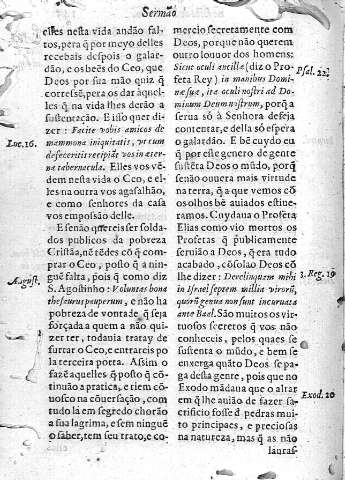 Sermão
elles nesta vida andão fal-
tos, pera q̃ por meyo delles
recebais despois o galar-
dão, e os bẽes do Ceo, que
Deos por sua mão quiz q̃
corressẽ, pera os dar àquel-
les q̃ na vida lhes derão a
sustentação. E isso quer di-
zer: Facite vobis amicos de
Luc. 16.
mammona iniquitatis, vt cum
defeceritis recipiãt vos in æter-
na tabernacula. Elles vos vẽ-
dem nesta vida o Ceo, e el-
les na outra vos agasalhão,
e como senhores da casa
vos empossão delle.
E senão quereis ser solda-
dos publicos da pobreza
Cristãa, nẽ tẽdes cõ q̃ com-
prar o Ceo, posto q̃ a nin-
guẽ falta, pois q̃ como diz
August.
S. Agostinho: Voluntas bona
thesaurus pauperum, e não ha
pobreza de vontade q̃ seja
forçada a quem a não qui-
zer ter, todauia tratay de
furtar o Ceo, e entrareis po
la terceira porta. Assim o
fazẽ aquelles q̃ posto q̃ cõ-
tinuão a pratica, e riem cõ-
nosco na cõuersação, com
tudo lá em segredo chorão
a sua lagrima, e sem ninguẽ
o saber, tem seu trato, e co-
mercio secretamente com
Deos, porque não querem
outro louuor dos homens:
Sicut oculi ancillæ (diz o Pro-
Psal. 122.
feta Rey) in manibus Domi-
næ suæ, ita oculi nostri ad Do-
minum Deum nostrum, porq̃ a
serua só à Senhora deseja
contentar, e della só espera
o galardão. E bẽ cuydo eu
q̃ por este genero de gente
sustẽta Deos o mũdo, porq̃
senão ouuera mais virtude
na terra, q̃ a que vemos cõ
os olhos bẽ auiados estiue-
ramos. Cuydaua o Profeta
Elias como vio mortos os
Profetas q̃ publicamente
seruião a Deos, q̃ era tudo
acabado, cõsolao Deos cõ
lhe dizer: Derelinquam mihi
3. Reg. 19
in Israel septem millia virorũ,
quorũ genua non sunt incuruata
ante Bael. São muitos os vir-
tuosos secretos q̃ vos não
conheceis, pelos quaes se
sustenta o mũdo, e bem se
enxerga quãto Deos se pa-
ga desta gente, pois que no
Exodo mãdaua que o altar
Exod. 20
em q̃ lhe auião de fazer sa-
crificio fosse d̃ pedras mui-
to principaes, e preciosas
na natureza, mas q̃ as não
lauras-